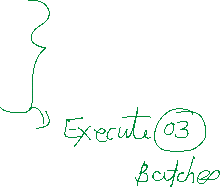 Execute 03
Batches